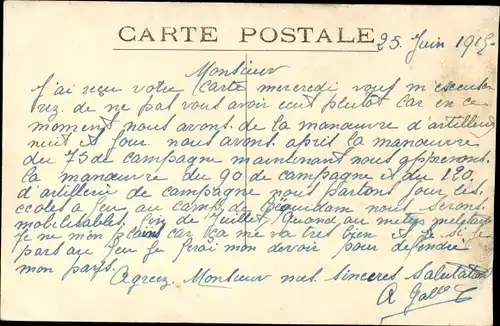 CARTE POSTALE
25. Juin 1915
Monsieur
J'ai reçu votre Carte mercredi vous m'escuse
rez. de ne pas vous avoir ecrit plutot car en ce
moment nous avons de la manœuvre d'artillerie
nuit et jour nous avons apris la manœuvre
du 75 de campagne maintenant nous apprenons
la manœuvre du 90 de campagne et du 120.
d'artillerie de campagne nous partons pour les
ecoles a feu au camp de nous serons
mobilisables fin de Juillet. Quand au metier militaire
Je ne mon plains car ça me va tres bien et si je
pars au feu Je ferai mon devoir pour defendre
mon pays.
Agreez Monsieur mes sinceres Salutations
A